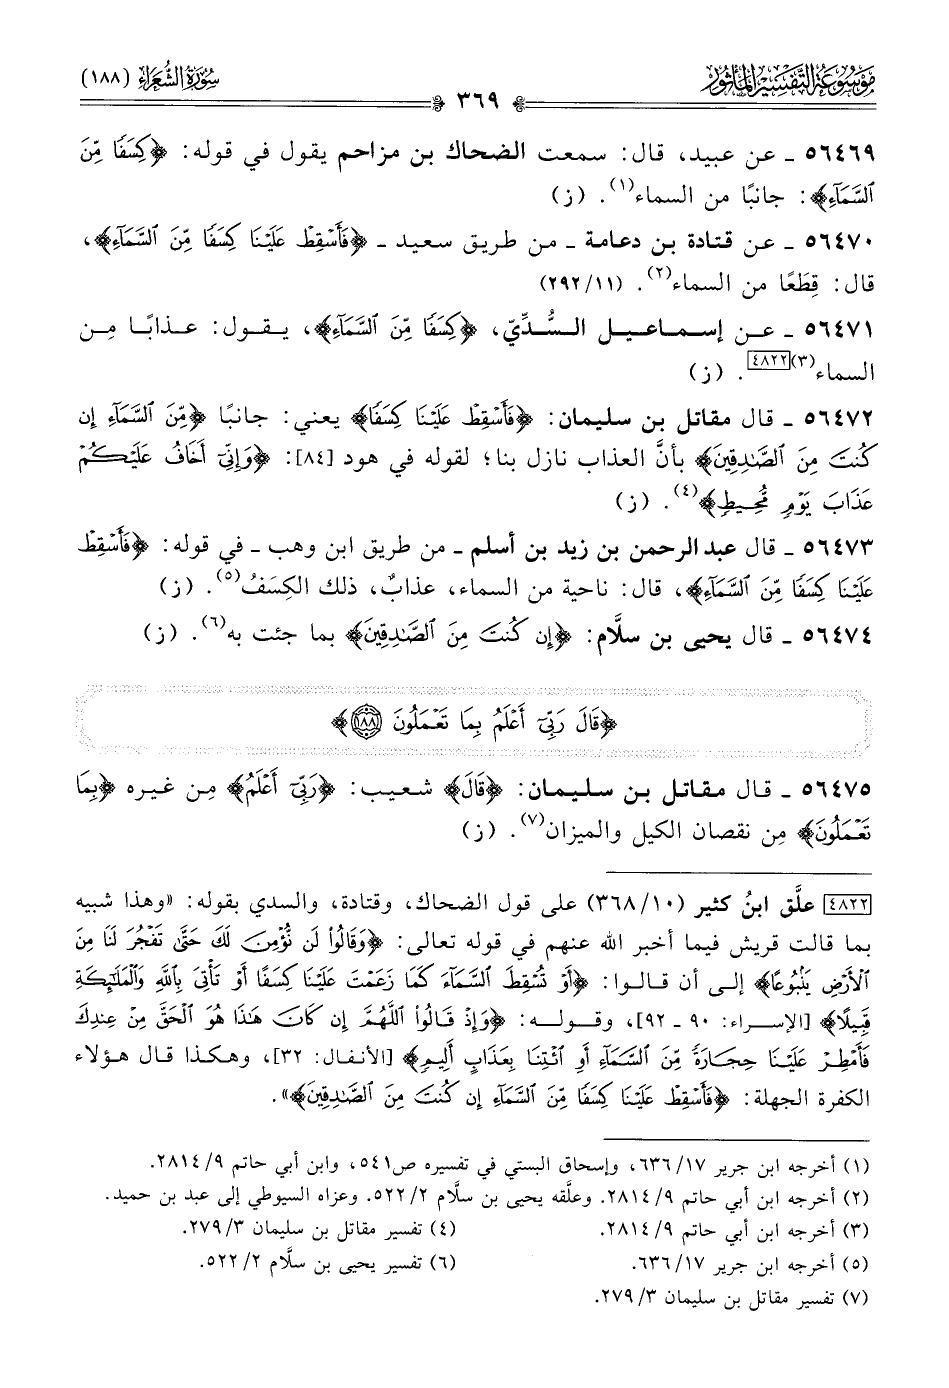 مَوْسُوعَة التَّفْسِيرُ المَأْثُور
٣٦٩
سُورَةُ الشُّعَرَاءِ (١٨٨)
٥٦٤٦٩ ـ عن عبيد، قال: سمعت الضحاك بن مزاحم يقول في قوله: ﴿كِسَفًا مِّنَ
ٱلسَّمَآءِ﴾: جانبًا من السماء(١). (ز)
٥٦٤٧٠ ـ عن قتادة بن دعامة ـ من طريق سعيد ـ ﴿فَأَسۡقِطۡ عَلَيۡنَا كِسَفًا مِّنَ ٱلسَّمَآءِ﴾،
قال: قِطَعًا من السماء(٢). (٢٩٢/١١)
٥٦٤٧١ ـ عن إسماعيل السُّدِّيّ، ﴿كِسَفًا مِّنَ ٱلسَّمَآءِ﴾، يقول: عذابًا مِن
السماء(٣)[٤٨٢٢]. (ز)
٥٦٤٧٢ ـ قال مقاتل بن سليمان: ﴿فَأَسۡقِطۡ عَلَيۡنَا كِسَفًا﴾ يعني: جانبًا ﴿مِّنَ ٱلسَّمَآءِ إِن
كُنتَ مِنَ ٱلصَّٰدِقِينَ﴾ بأنَّ العذاب نازل بنا؛ لقوله في هود [٨٤]: ﴿وَإِنِّيٓ أَخَافُ عَلَيۡكُمۡ
عَذَابَ يَوۡمٖ مُّحِيطٖ﴾(٤). (ز)
٥٦٤٧٣ ـ قال عبد الرحمن بن زيد بن أسلم ـ من طريق ابن وهب ـ في قوله: ﴿فَأَسۡقِطۡ
عَلَيۡنَا كِسَفًا مِّنَ ٱلسَّمَآءِ﴾، قال: ناحية من السماء، عذابٌ، ذلك الكِسَفُ(٥). (ز)
٥٦٤٧٤ ـ قال يحيى بن سلَّام: ﴿إِن كُنتَ مِنَ ٱلصَّٰدِقِينَ﴾ بما جئت به(٦). (ز)
﴿قَالَ رَبِّيٓ أَعۡلَمُ بِمَا تَعۡمَلُونَ ١٨٨﴾
٥٦٤٧٥ ـ قال مقاتل بن سليمان: ﴿قَالَ﴾ شعيب: ﴿رَبِّيٓ أَعۡلَمُ﴾ مِن غيره ﴿بِمَا
تَعۡمَلُونَ﴾ مِن نقصان الكيل والميزان(٧). (ز)
[٤٨٢٢] علَّق ابنُ كثير (٣٦٨/١٠) على قول الضحاك، وقتادة، والسدي بقوله: «وهذا شبيه
بما قالت قريش فيما أخبر الله عنهم في قوله تعالى: ﴿وَقَالُواْ لَن نُّؤۡمِنَ لَكَ حَتَّىٰ تَفۡجُرَ لَنَا مِنَ
ٱلۡأَرۡضِ يَنۢبُوعًا﴾ إلى أن قالوا: ﴿أَوۡ تُسۡقِطَ ٱلسَّمَآءَ كَمَا زَعَمۡتَ عَلَيۡنَا كِسَفًا أَوۡ تَأۡتِيَ بِٱللَّهِ وَٱلۡمَلَٰٓئِكَةِ
قَبِيلًا﴾ [الإسراء: ٩٠ ـ ٩٢]، وقوله: ﴿وَإِذۡ قَالُواْ ٱللَّهُمَّ إِن كَانَ هَٰذَا هُوَ ٱلۡحَقَّ مِنۡ عِندِكَ
فَأَمۡطِرۡ عَلَيۡنَا حِجَارَةٗ مِّنَ ٱلسَّمَآءِ أَوِ ٱئۡتِنَا بِعَذَابٍ أَلِيمٖ﴾ [الأنفال: ٣٢]، وهكذا قال هؤلاء
الكفرة الجهلة: ﴿فَأَسۡقِطۡ عَلَيۡنَا كِسَفًا مِّنَ ٱلسَّمَآءِ إِن كُنتَ مِنَ ٱلصَّٰدِقِينَ﴾».
(١) أخرجه ابن جرير ١٧/ ٦٣٦، وإسحاق البستي في تفسيره ص٥٤١، وابن أبي حاتم ٩/ ٢٨١٤.
(٢) أخرجه ابن أبي حاتم ٩/ ٢٨١٤. وعلَّقه يحيى بن سلَّام ٢/ ٥٢٢. وعزاه السيوطي إلى عبد بن حميد.
(٣) أخرجه ابن أبي حاتم ٩/ ٢٨١٤. (٤) تفسير مقاتل بن سليمان ٣/ ٢٧٩.
(٥) أخرجه ابن جرير ١٧/ ٦٣٦. (٦) تفسير يحيى بن سلَّام ٢/ ٥٢٢.
(٧) تفسير مقاتل بن سليمان ٣/ ٢٧٩.